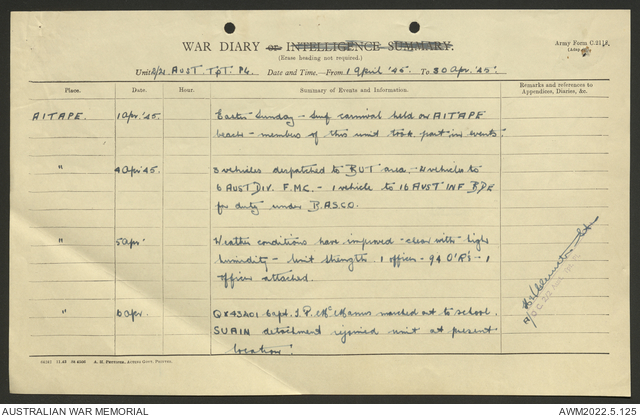 WAR DIARY or INTELLIGENCE SUMMARY.
(Erase heading not required.)
Army Form C.2118.
Unit AUST TPT. PL. Date and Time—From 1 April '45. To 30 Apr. '45.
Place.
Date.
Hour.
Summary of Events and Information.
Remarks and references to
Appendices, Diaries, &c.
AITAPE.
1 Apr. '45.
Easter Sunday - Surf carnival held on AITAPE
beach - members of this unit took part in events.
"
4 Apr '45.
vehicles despatched to BUT area. - 4 vehicles to
6 AUST DIV. F.M.C. - 1 vehicle to 16 AUST INF BDE
for duty under B.A.S.C.O.
"
5 Apr.
Weather conditions have improved - clear with high
humidity - Unit strength 1 officer - 94 O'R's - 1
officer attached.
"
6 Apr.
QX43401 Capt. J.P. McManus marched out to school.
SUAIN detachment rejoined unit at present
location.
A. H. Pettifer, Acting Govt. Printer.
AUSTRALIAN WAR MEMORIAL
AWM2022.5.125